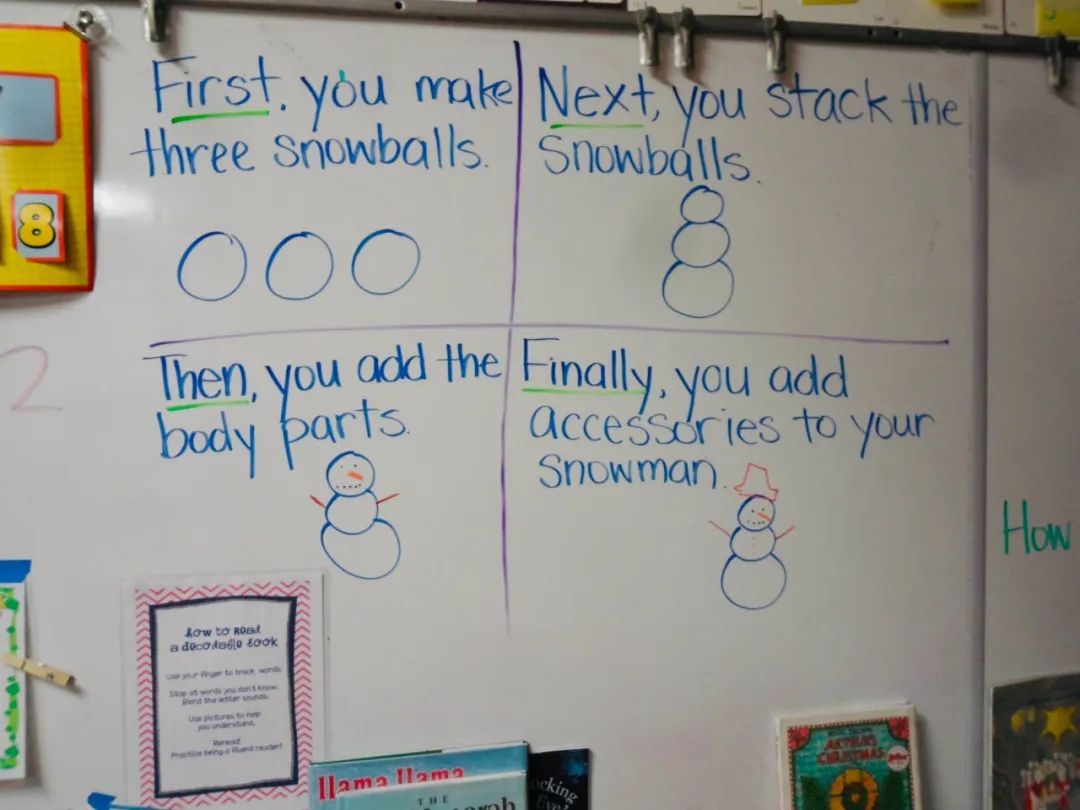 First, you make
three snowballs.
Next, you stack the
snowballs.
Then, you add the
body parts.
Finally, you add
accessories to your
snowman.
8
2
How
How to Read
a decodable book
Use your finger to track words.
Stop at words you don't know.
Blend the letter sounds.
Use pictures to help
you understand.
Reread!
Practice being a fluent reader!
llama llama
THE
ocking
Eve?
ARTHUR'S
CHRISTMAS